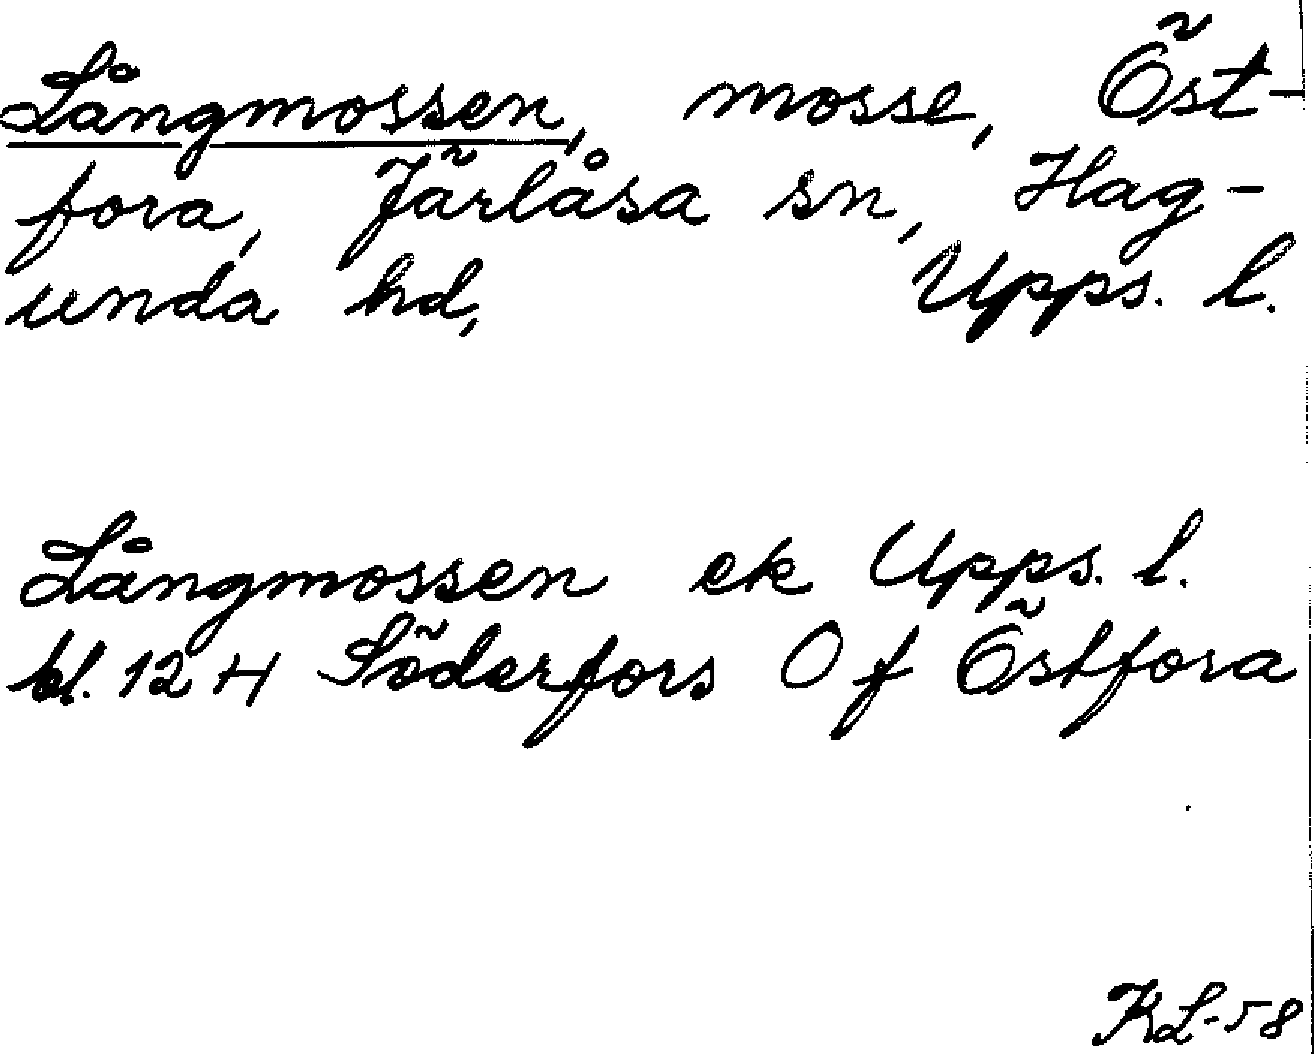 Långmossen, mosse, Öst-
fora, Järlåsa sn, Hag-
unda hd, Upps. l.
Långmossen ek Upps. l.
bl. 12 H Söderfors O f Östfora
KL-58